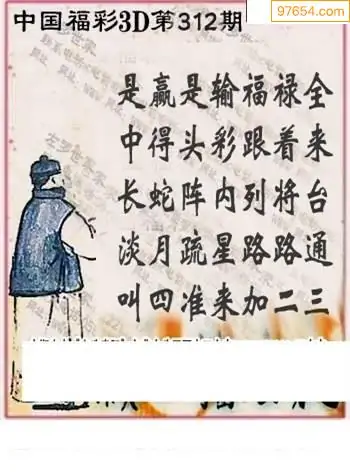 97654.com
中国福彩3D第312期
是赢是输福禄全
中得头彩跟着来
长蛇阵内列将台
淡月疏星路路通
叫四准来加二三